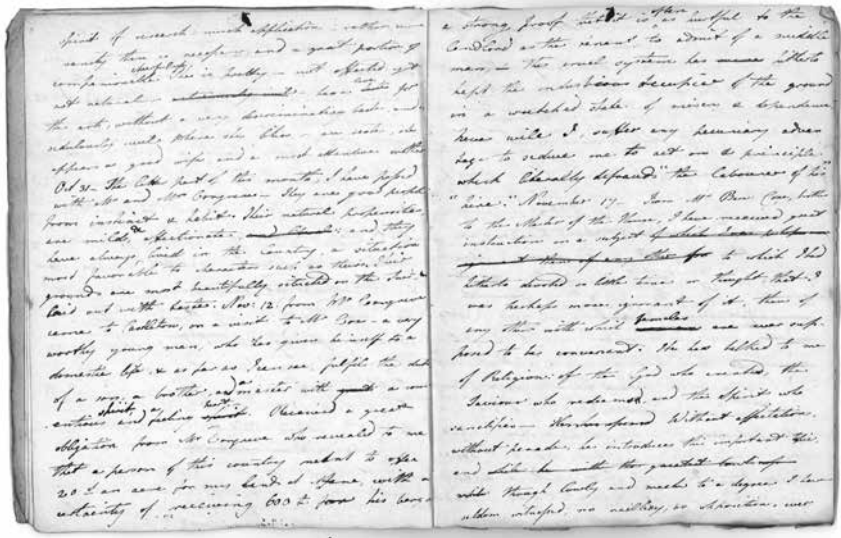 spirit of research much application rather
vanity than is necessary and a great portion of
companionable She is healthy not affected yet
not natural a for
the arts, without a very discriminating taste and
sedulously well where she likes an he
appears a good wife and a most attentive mother
Oct 31 The little part of this month, I have passed
with Mr and Mrs Congreve They are good people
from instinct & habit. Their natural propensities
are mild, & affectionate, and liberal: and they
have always lived in the Country, a situation
most favorable to characters such as theirs. Their
grounds are most beautifully situated on the &
laid out with taste. Nov: 12. from Mr Congreve
came to Castletown, on a visit to Mr Coxe a very
worthy young man, who has given himself to a
domestic life, & as far as I can see, fulfils the duties
of a son, a brother, and a master with a con
entious spirit, and a feeling heart. Received a great
obligation from Mr Congreve who revealed to me
that a person of this country meant to offer
20 s an acre for my land at with a
certainty of receiving 600 for his
a strong proof that it is often as hurtful to the
Landlord as the tenant, to admit of a middle
man, This cruel system has hitherto
kept the industrious occupier of the ground
in a wretched state of misery & dependence
Never will I suffer any pecuniary advan
tage to reduce me to act on a principle
which literally defrauds "the Labourer of his"
"hire." November 17 From Mr Ben Coxe, brother
to the Master of the House, I have received great
instruction on a subject
to which I had
hitherto devoted so little time or thought that I
was perhaps more ignorant of it, than of
any other with which females are ever sup
posed to be conversant. He has talked to me
of Religion of the God who created, the
Saviour who redeemed, and the Spirit who
sanctifies Without affectation,
without parade, he introduces this important
and while he with the greatest
while though lowly and meek to a degree I have
seldom witnessed, no raillery, no opposition, ever